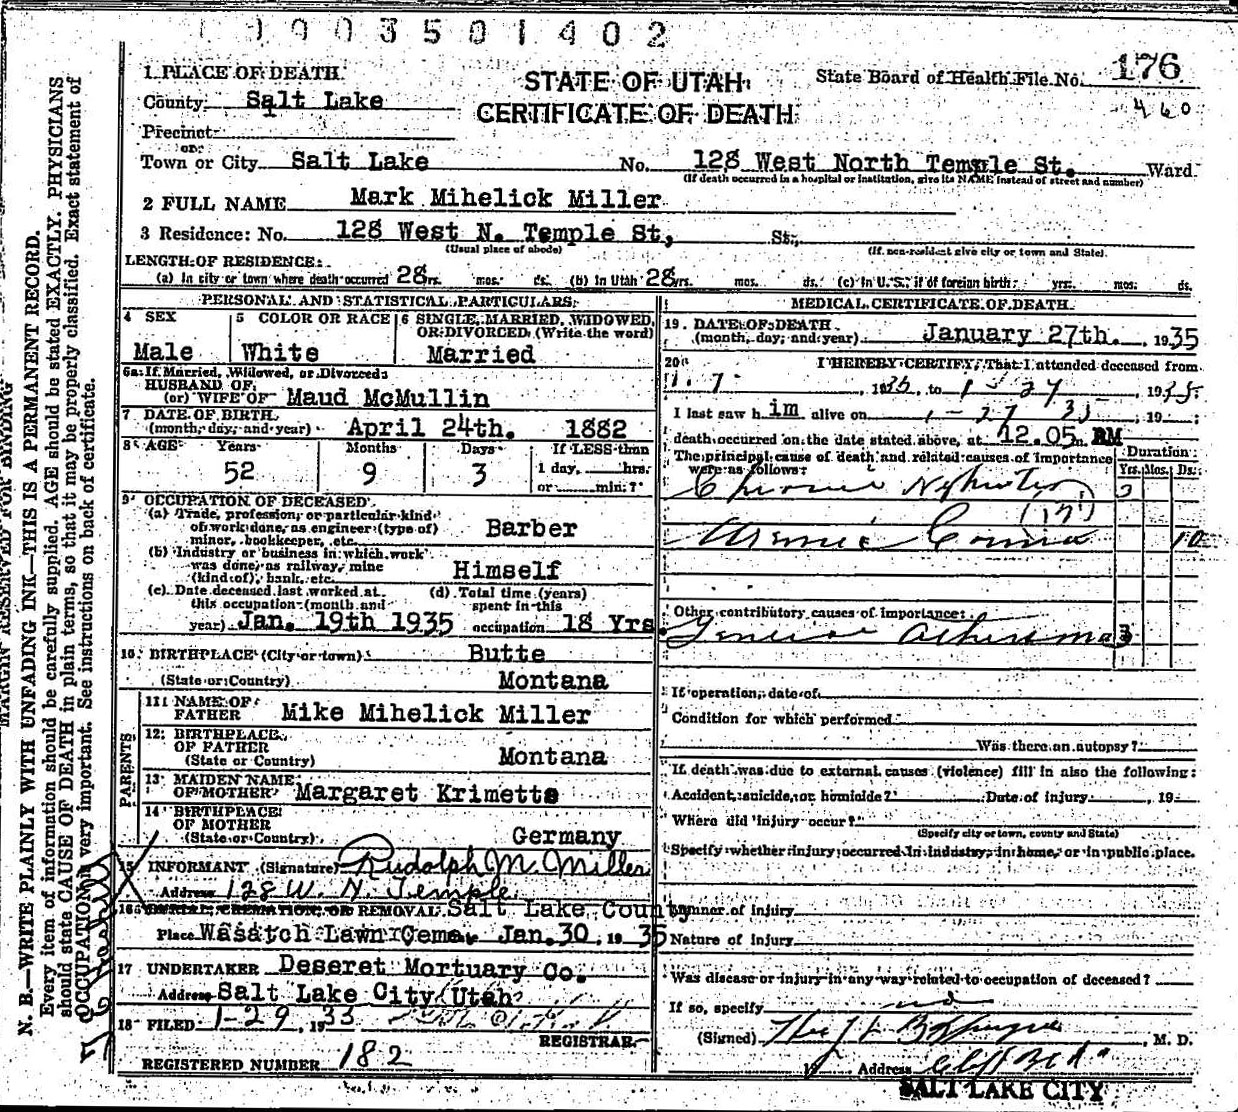 1903501402
1 PLACE OF DEATH
STATE OF UTAH
CERTIFICATE OF DEATH
State Board of Health File No. 176
460
County Salt Lake
Precinct
or
Town or City Salt Lake No. 128 West North Temple St. Ward
(If death occurred in a hospital or institution, give its NAME instead of street and number)
2 FULL NAME Mark Mihelick Miller
3 Residence: No. 128 West N. Temple St, St.,
(Usual place of abode) (If non-resident give city or town and State)
LENGTH OF RESIDENCE:
(a) In city or town where death occurred 28 yrs. mos. ds. (b) In Utah 28 yrs. mos. ds. (c) In U. S., if of foreign birth: yrs. mos. ds.
PERSONAL AND STATISTICAL PARTICULARS
4 SEX Male
5 COLOR OR RACE White
6 SINGLE, MARRIED, WIDOWED, OR DIVORCED (Write the word)
Married
6a If Married, Widowed, or Divorced:
HUSBAND OF
(or) WIFE OF Maud McMullin
7 DATE OF BIRTH
(month, day, and year) April 24th. 1882
8 AGE Years Months Days If LESS than
52 9 3 1 day, hrs.
or min.?
9 OCCUPATION OF DECEASED
(a) Trade, profession, or particular kind
of work done, as engineer (type of)
minor, bookkeeper, etc. Barber
(b) Industry or business in which work
was done, as railway, mine
(kind of), bank, etc. Himself
(c) Date deceased last worked at
this occupation (month and
year) Jan. 19th 1935
(d) Total time (years)
spent in this
occupation 18 Yrs.
10 BIRTHPLACE (City or town) Butte
(State or Country) Montana
PARENTS
11 NAME OF
FATHER Mike Mihelick Miller
12 BIRTHPLACE
OF FATHER
(State or Country) Montana
13 MAIDEN NAME
OF MOTHER Margaret Krimetts
14 BIRTHPLACE
OF MOTHER
(State or Country) Germany
15 INFORMANT (Signature) Rudolph M. Miller
Address 128 W. N. Temple
16 BURIAL, CREMATION, OR REMOVAL Salt Lake County
Place Wasatch Lawn Ceme. Jan. 30, 1935
17 UNDERTAKER Deseret Mortuary Co.
Address Salt Lake City Utah
18 FILED 1-29, 1935
REGISTRAR
REGISTERED NUMBER 182
MEDICAL CERTIFICATE OF DEATH
19 DATE OF DEATH
(month, day, and year) January 27th. , 1935
20 I HEREBY CERTIFY, That I attended deceased from
1-7- , 1935, to 1-27 , 1935
I last saw him alive on 1-27 35, 19 ;
death occurred on the date stated above, at 12.05 m
The principal cause of death and related causes of importance
were as follows:
Duration
Yrs. Mos. Ds.
Chronic Nephritis 3
(131)
Uremic Coma 10
Other contributory causes of importance:
3
If operation, date of
Condition for which performed
Was there an autopsy?
If death was due to external causes (violence) fill in also the following:
Accident, suicide, or homicide? Date of injury , 19
Where did injury occur?
(Specify city or town, county and State)
Specify whether injury occurred in industry, in home, or in public place.
Manner of injury
Nature of injury
Was disease or injury in any way related to occupation of deceased?
If so, specify no
(Signed) , M. D.
19 Address
SALT LAKE CITY
MARGIN RESERVED FOR BINDING
N. B.—WRITE PLAINLY WITH UNFADING INK—THIS IS A PERMANENT RECORD.
Every item of information should be carefully supplied. AGE should be stated EXACTLY. PHYSICIANS
should state CAUSE OF DEATH in plain terms, so that it may be properly classified. Exact statement of
OCCUPATION is very important. See instructions on back of certificate.